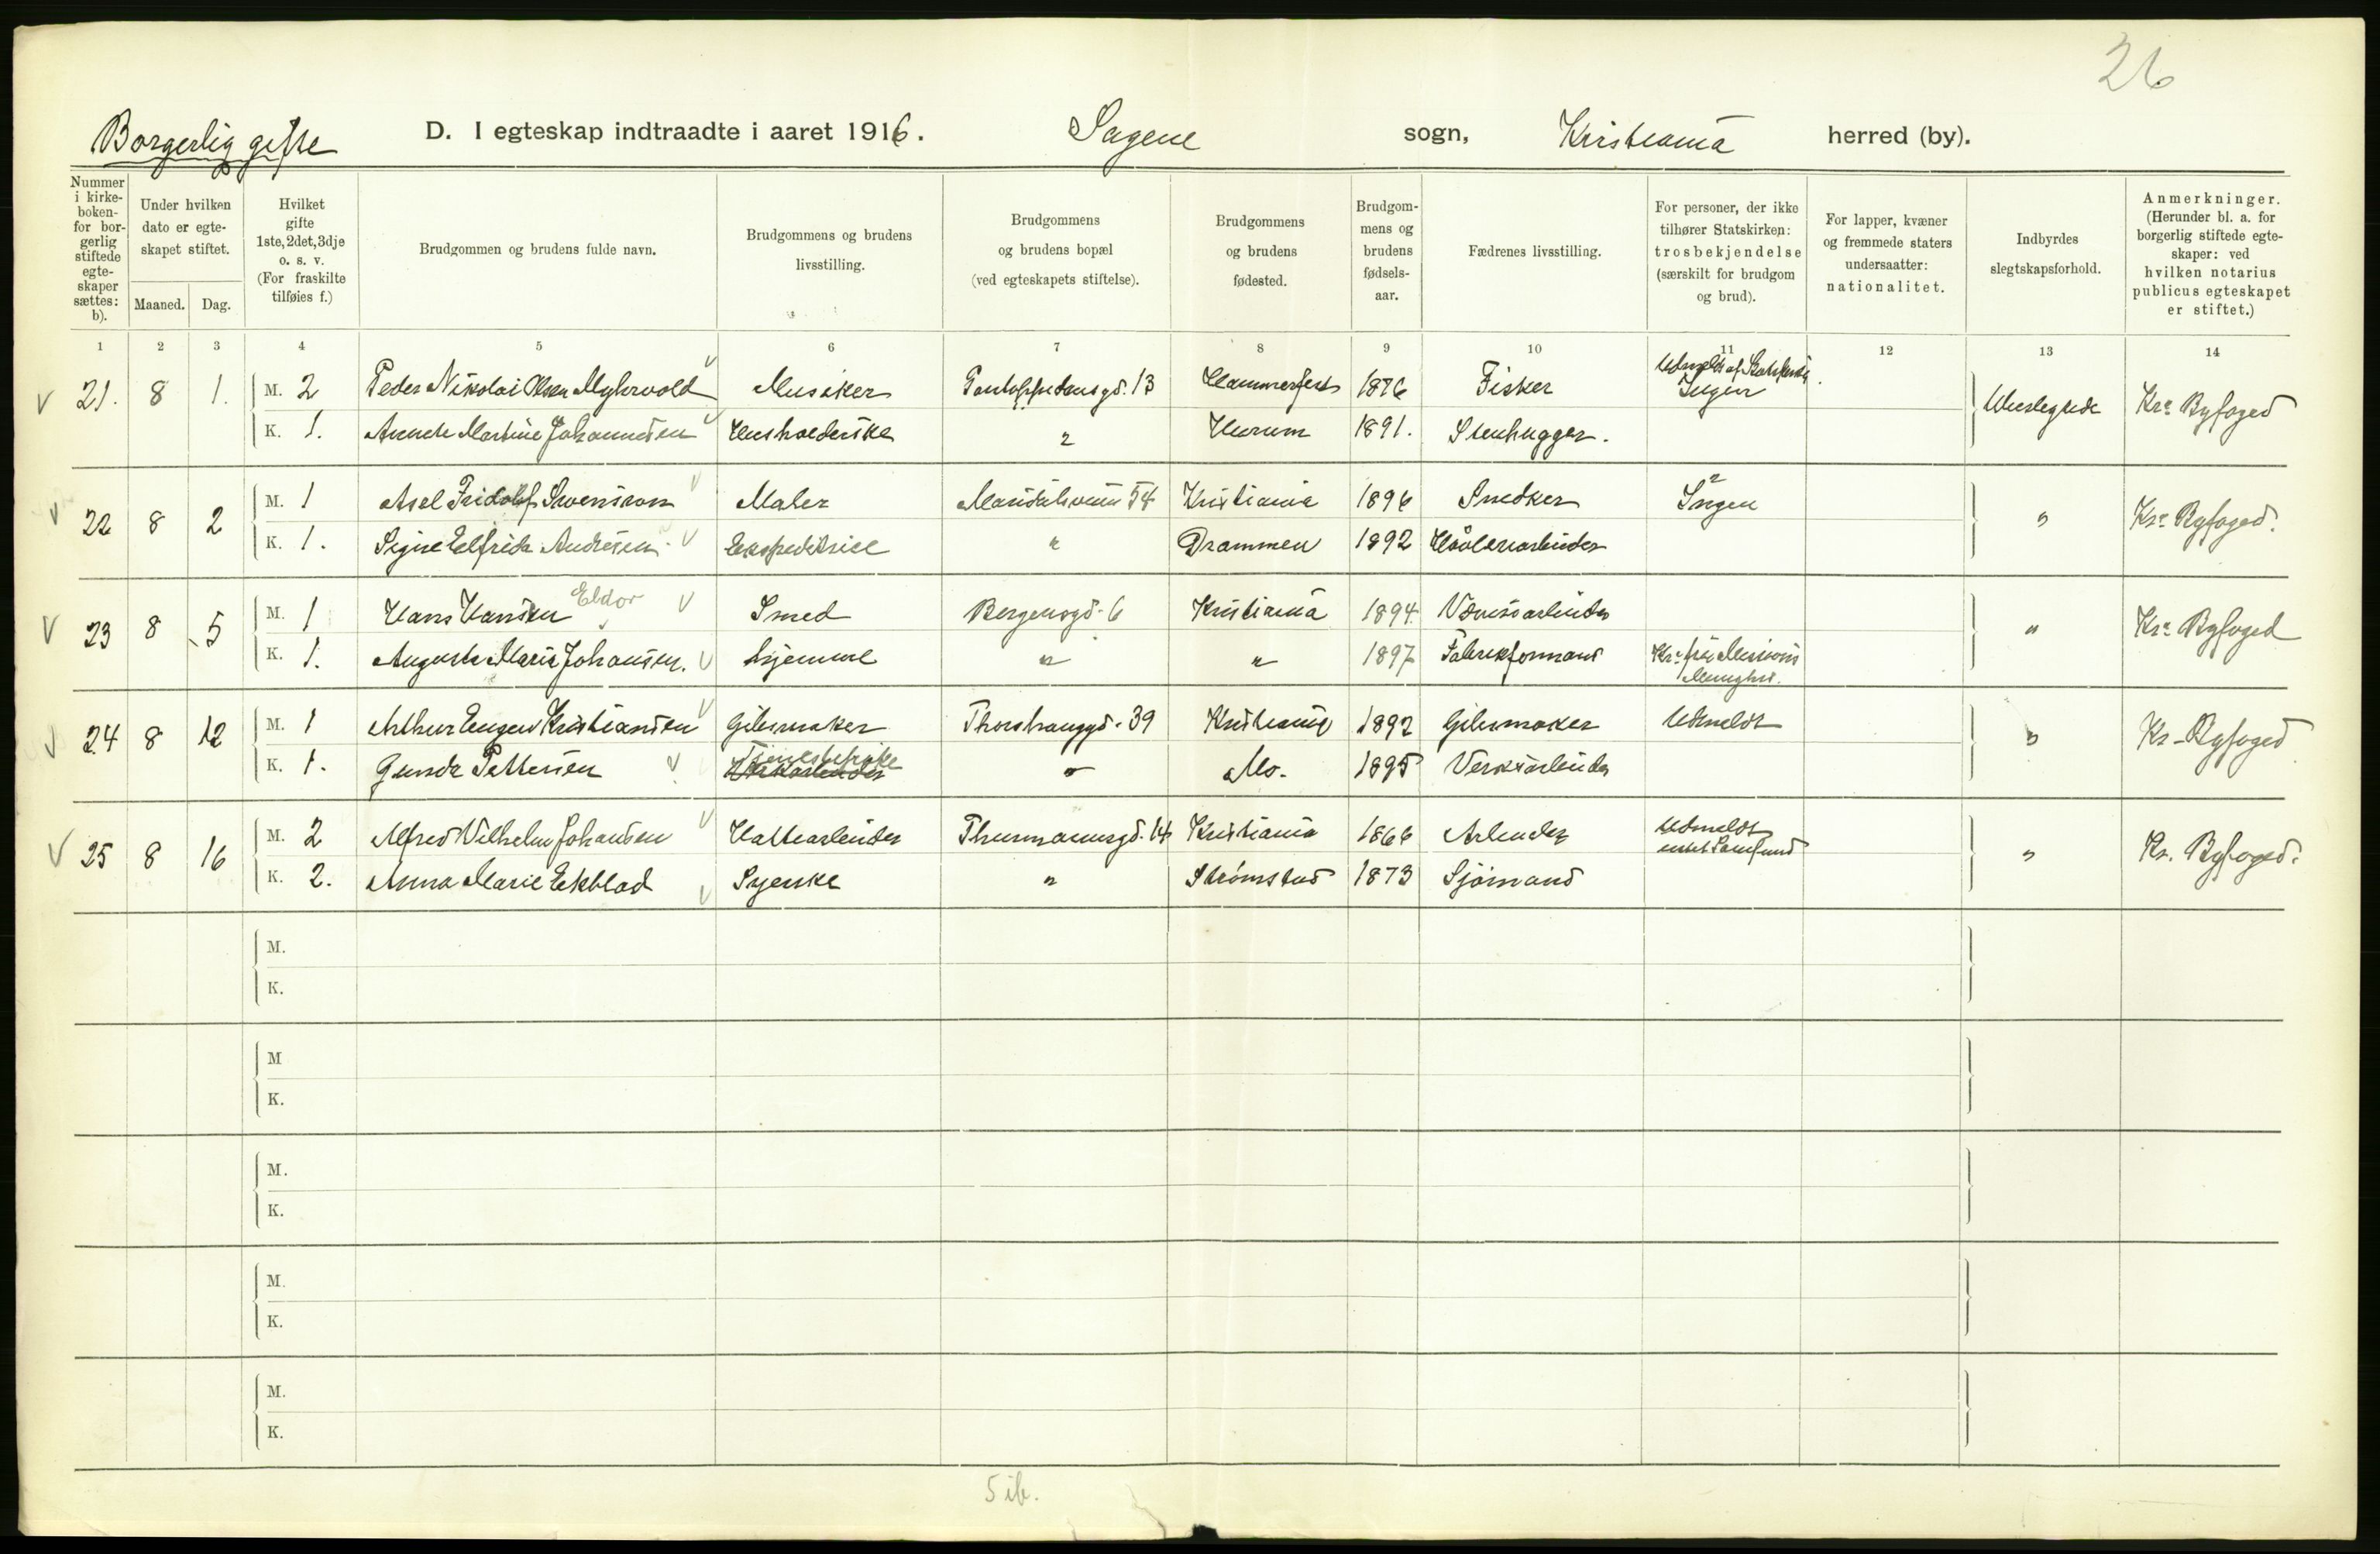 26
Borgerlig gifte D. I egteskap indtraadte i aaret 1916. Sagene sogn, Kristiania herred (by).
Nummer i kirkeboken- for borgerlig stiftede egteskaper sættes: b).
Under hvilken dato er egteskapet stiftet.
Maaned. Dag.
Hvilket gifte 1ste, 2det, 3dje o. s. v. (For fraskilte tilføies f.)
Brudgommen og brudens fulde navn.
Brudgommens og brudens livsstilling.
Brudgommens og brudens bopæl (ved egteskapets stiftelse).
Brudgommens og brudens fødested.
Brudgommens og brudens fødselsaar.
Fædrenes livsstilling.
For personer, der ikke tilhører Statskirken: trosbekjendelse (særskilt for brudgom og brud).
For lapper, kvæner og fremmede staters undersaatter: nationalitet.
Indbyrdes slegtskapsforhold.
Anmerkninger. (Herunder bl. a. for borgerlig stiftede egteskaper: ved hvilken notarius publicus egteskapet er stiftet.)
1 2 3 4 5 6 7 8 9 10 11 12 13 14
21. 8 1. M. 2 Peder Nikolai Olsen Myhrvold Musiker 13 Hammerfest 1876 Fisker Udmeldt af Statskirken Ingen Ubeslegtede Kra Byfoged
K. 1. Annete Martine Johannesen Husholderske " Hurum 1891. Stenhugger.
22 8 2 M. 1 Axel Fridolf Svenson Maler Maridalsveien 54 Kristiania 1896 Snedker Ingen " Kra Byfoged.
K. 1. Signe Elfrida Andresen Ekspeditrice " Drammen 1892 Høvleriarbeider
23 8 5 M. 1 Hans Hansen Eldor Smed Bergensgd. 6 Kristiania 1894 " Kra Byfoged
K. 1. Augusta Marie Johansen. hjemme " " 1897 Fabrikformand Kra frie Missions Menighet.
24 8 12 M. 1 Arthur Eugen Kristiansen Gibsmaker Thorshauggd. 39 Kristiania 1892 Gibsmaker Udmeldt " Kr. Byfoged
K. 1. Gunda Pettersen Tjenestepike " Mo. 1895 Verksarbeider
25 8 16 M. 2 Alfred Vilhelm Johansen Hattearbeider Thurmannsgd. 14 Kristiania 1866 Arbeider Udmeldt intet Samfund " Kr. Byfoged.
K. 2. Anna Marie Ekblad Syerske " Strømstad 1873 Sjømand
M.
K.
M
K.
M.
K.
M.
K.
M.
K.
5 ib.